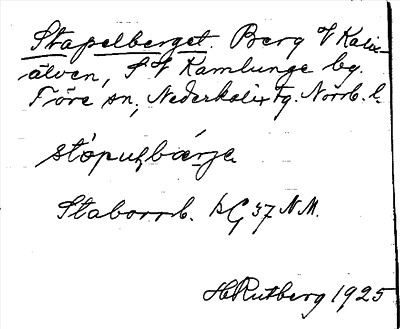 Stapelberget. Berg V Kalix-
älven, S V Kamlunge by.
Töre sn, Nederkalix tg. Norrb. l.
stópuɫbærje
Staborrb. KG 37 N.M.
H Rutberg 1925